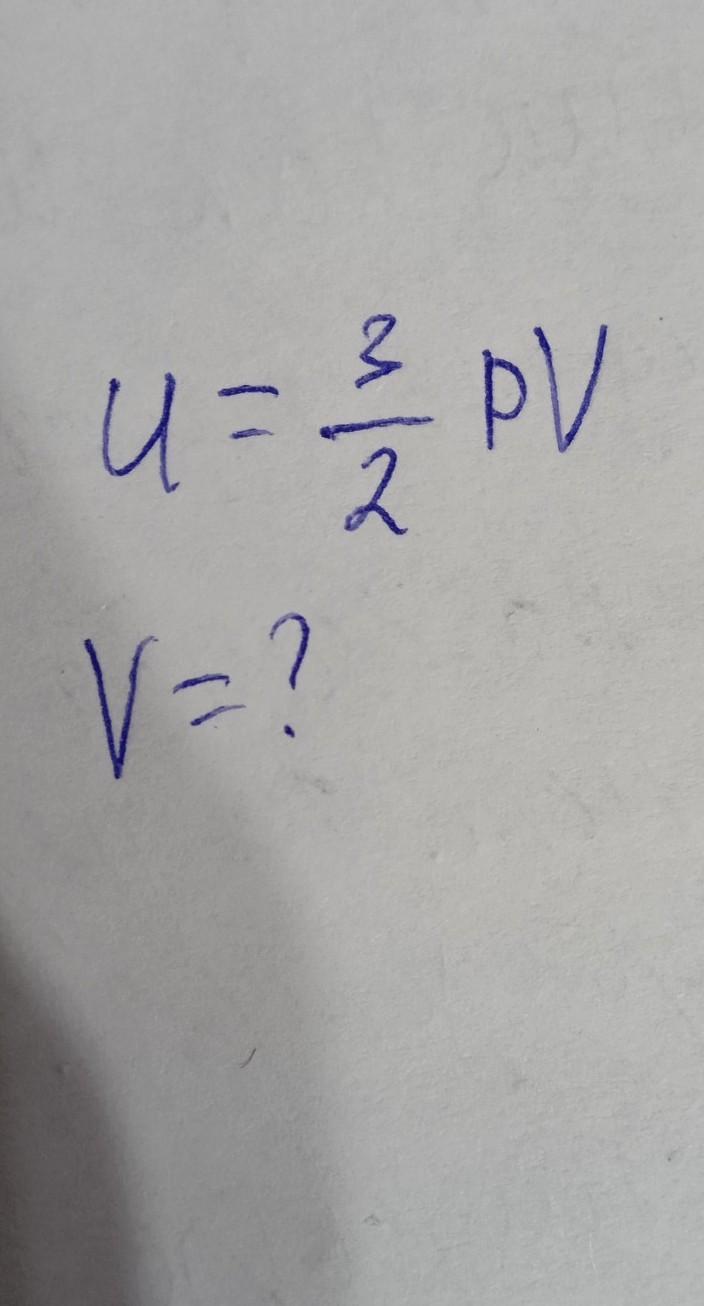 U = 3/2 pV
V = ?